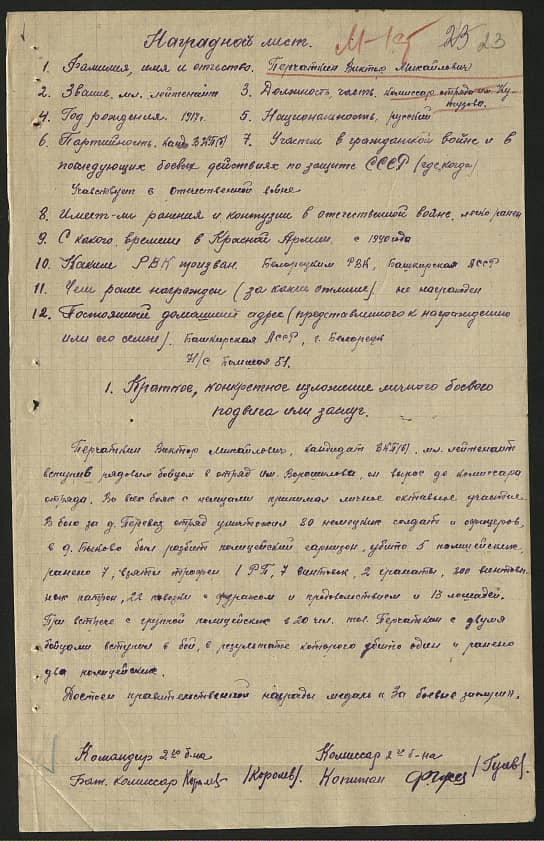 Наградной лист. М-195 25 23
1. Фамилия, имя и отчество. Перчаткин Виктор Михайлович
2. Звание. мл. лейтенант 3. Должность, часть. комиссар отряда им. Ку-
тузова.
4. Год рождения. 1917г. 5. Национальность. русский
6. Партийность. канд. ВКП(б) 7. Участие в гражданской войне и в
последующих боевых действиях по защите СССР (где, когда)
Участвует в отечественной войне
8. Имеет-ли ранения и контузии в отечественной войне. легко ранен
9. С какого времени в Красной Армии. с 1940 года
10. Каким РВК призван. Белорецким РВК, Башкирская АССР
11. Чем ранее награжден (за какие отличия) не награжден
12. Постоянный домашний адрес (представленного к награждению
или его семьи). Башкирская АССР, г. Белорецк
51.
1. Краткое, конкретное изложение личного боевого
подвига или заслуг.
Перчаткин Виктор Михайлович, кандидат ВКП(б), мл. лейтенант
вступив рядовым бойцом в отряд им. Ворошилова, он вырос до комиссара
отряда. Во всех боях с немцами принимал личное активное участие.
В бою за д. отряд уничтожил 80 немецких солдат и офицеров,
в д. Быково был разбит полицейский гарнизон, убито 5 полицейских,
ранено 7, взяты трофеи 1 РП, 7 винтовок, 2 гранаты, 200 винтов-
нок патрон, 22 повозки с фуражом и продовольствием и 13 лошадей.
При встрече с группой полицейских в 20 чел. тов. Перчаткин с двумя
бойцами вступил в бой, в результате которого убито один и ранено
два полицейских.
Достоен правительственной награды медаль "За боевые заслуги".
Командир 2го б-на Комиссар 2го б-на
Бат. комиссар /Королев/ Капитан /Гусев/